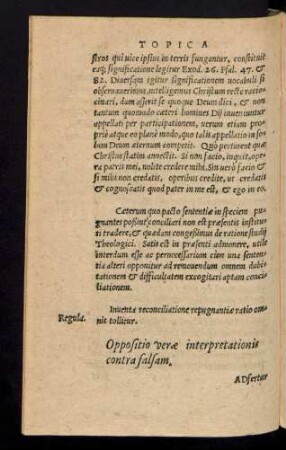 TOPICA
stros qui vice ipsius in terris fungantur, constituit
eaq; significatione legitur Exod. 26. Psal. 47. &
82. Diversam igitur significationem vocabuli si
observaverimus, intelligemus Christum recte ratio
cinari, dum asserit se quoque Deum dici, & non
tantum quomodo cæteri homines Dij inveniuntur
appellati per participationem, verum etiam pro-
priè atque eo planè modo, quo talis appellatio in so-
lum Deum æternum competit. Quò pertinent quæ
Christus statim annectit. Si non facio, inquit, ope-
ra patris mei, nolite credere mihi. Sin verò facio &
si mihi non credatis, operibus credite, ut credatis
& cognoscatis quod pater in me est, & ego in eo.
Cæterum quo pacto sententiæ in speciem pu-
gnantes possint conciliari non est præsentis institu-
ti tradere, & quædam congessimus de ratione studij
Theologici. Satis est in præsenti admonere, utile
interdum esse ac pernecessarium eius una senten-
tia alteri opponitur ad removendum omnem dubi-
tationem & difficultatem excogitari aptam conci-
liationem.
Regula.
Inventa reconciliatione repugnantiæ ratio om-
nis tollitur.
Oppositio veræ interpretationis
contra falsam.
ADfertur